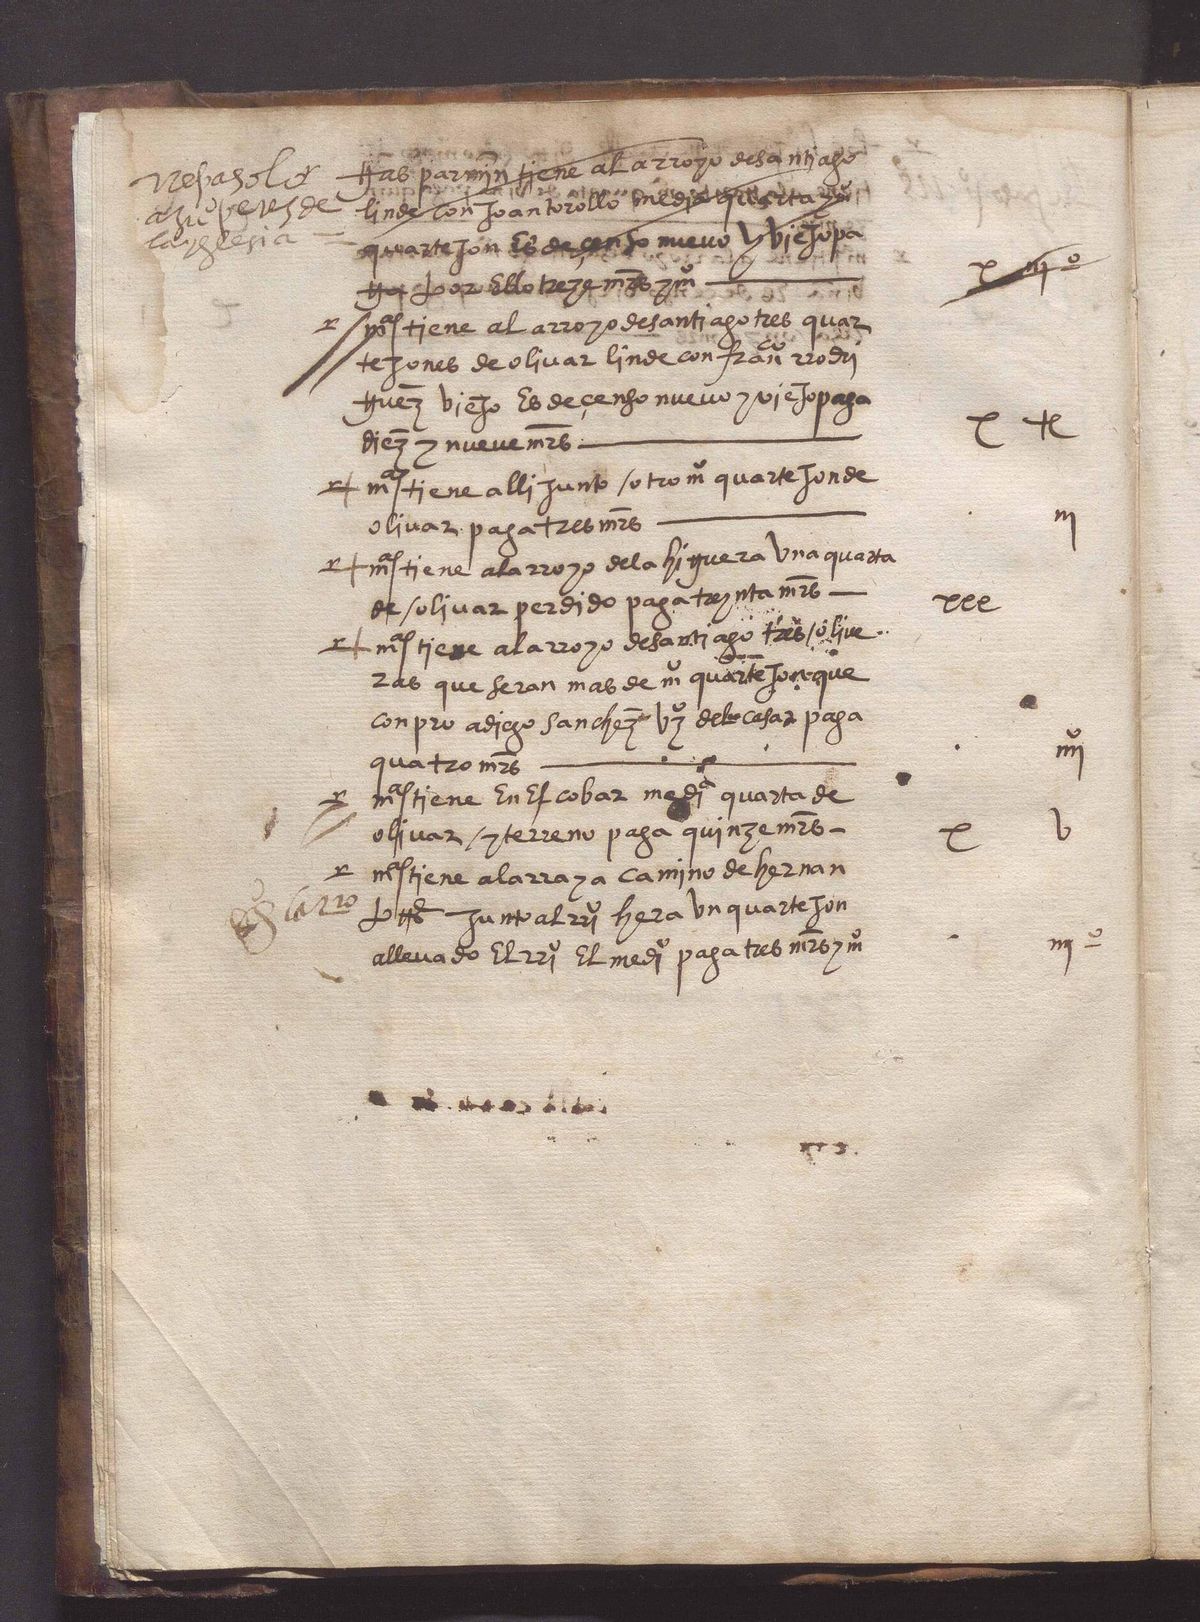 a Ju perez de
la yglesia
tiene al arroyo de santiago
linde con Joan torollo media quarta y mº
quartejon Es de çenso nuevo y viejo pa
por Ello treze mrs y mº
x iijº
r mas tiene al arroyo de santiago tres quar
tejones de olivar linde con franco rrodri
guez viejo Es de çenso nuevo y viejo paga
diez y nueve mrs
x ix
r + mas tiene alli Junto / otro mº quartejon de
olivar paga tres mrs
iij
r + mas tiene al arroyo de la higuera Una quarta
de / olivar perdido paga treynta mrs
xxx
r + mas tiene al arroyo de santiago tres / olive
ras que seran mas de mº quartejon que
conpro a diego sanchez vº del casar paga
quatro mrs
iiijº
r mas tiene En Escobar media quarta de
olivar / y terreno paga quinze mrs
x v
r mas tiene a larraya camino de hernan
Junto al rrº hera Un quartejon
a llevado El rrº El medº paga tres mrs y mº
iijº